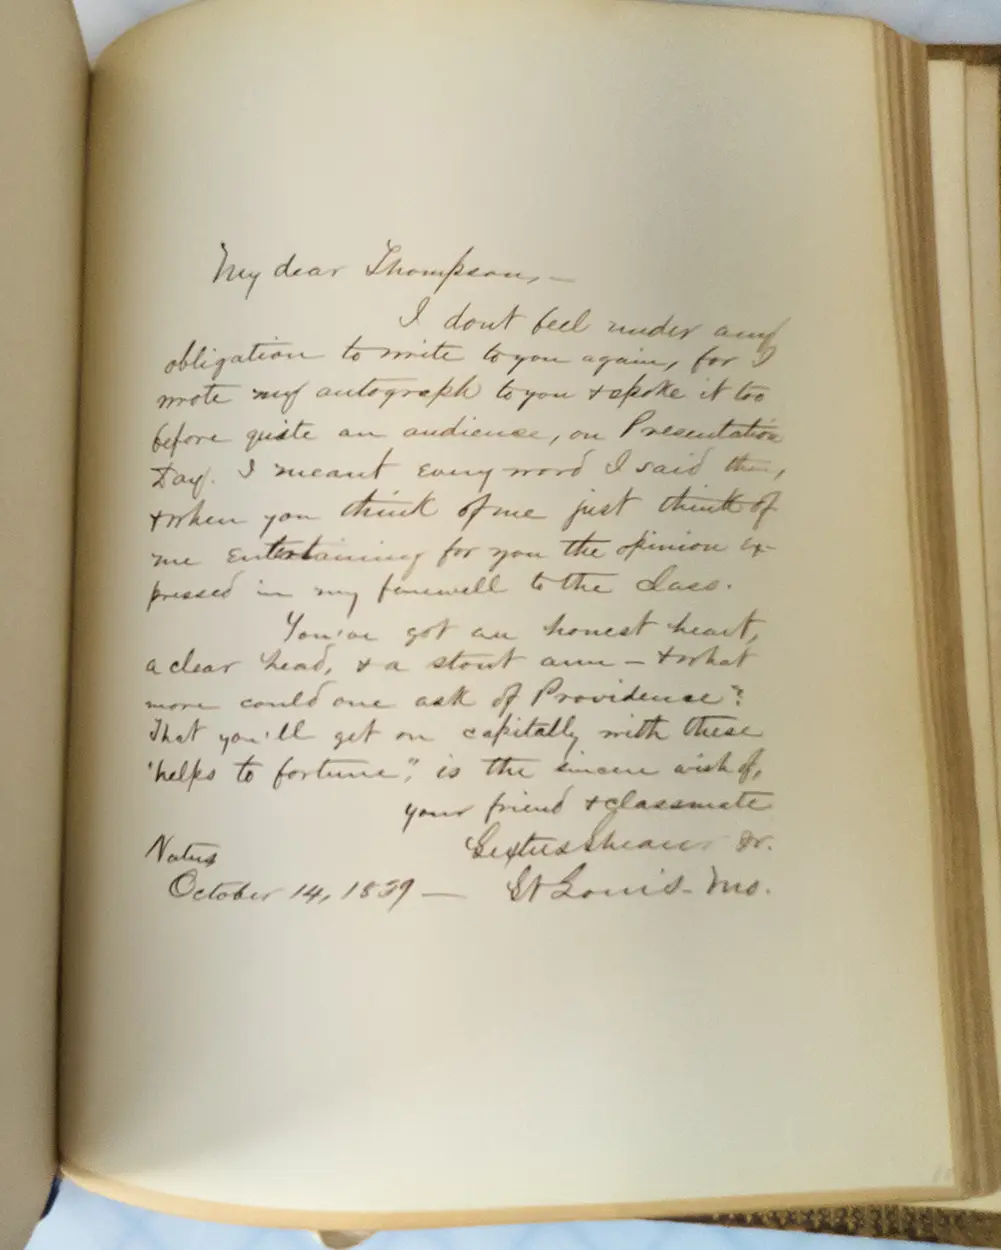 My dear Thompson, —
I dont feel under any
obligation to write to you again, for I
wrote my autograph to you + spoke it too
before quite an audience, on Presentation
Day. I meant every word I said then,
+ when you think of me just think of
me entertaining for you the opinion ex-
pressed in my farewell to the class.
You've got an honest heart,
a clear head, + a stout arm – + what
more could one ask of Providence?
That you'll get on capitally with these
"helps to fortune", is the sincere wish of,
your friend + classmate
Sextus Shearer Jr.
Natus
October 14, 1839 — St Louis – Mo.